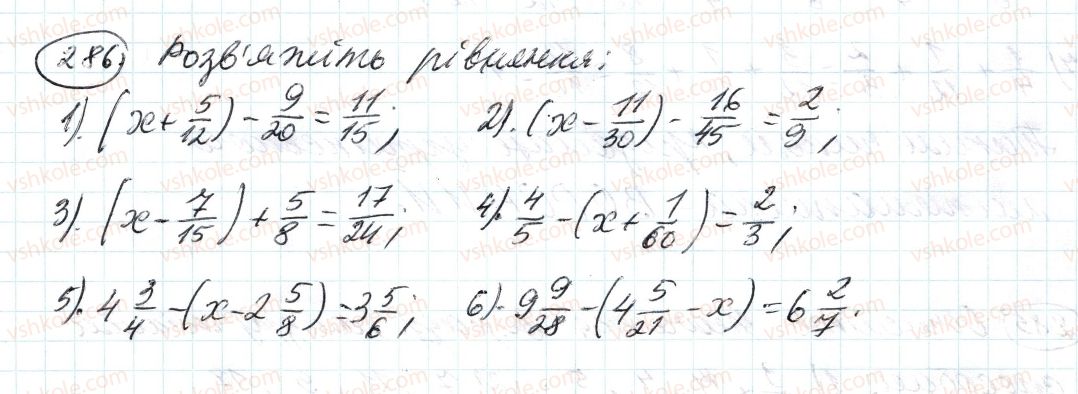 286) Розв'яжіть рівняння:
1). (x + 5/12) - 9/20 = 11/15; 2). (x - 11/30) - 16/45 = 2/9;
3). (x - 7/15) + 5/8 = 17/24; 4). 4/5 - (x + 1/60) = 2/3;
5). 4 3/4 - (x - 2 5/8) = 3 5/6; 6). 9 9/28 - (4 5/21 - x) = 6 2/7.
vshkole.com